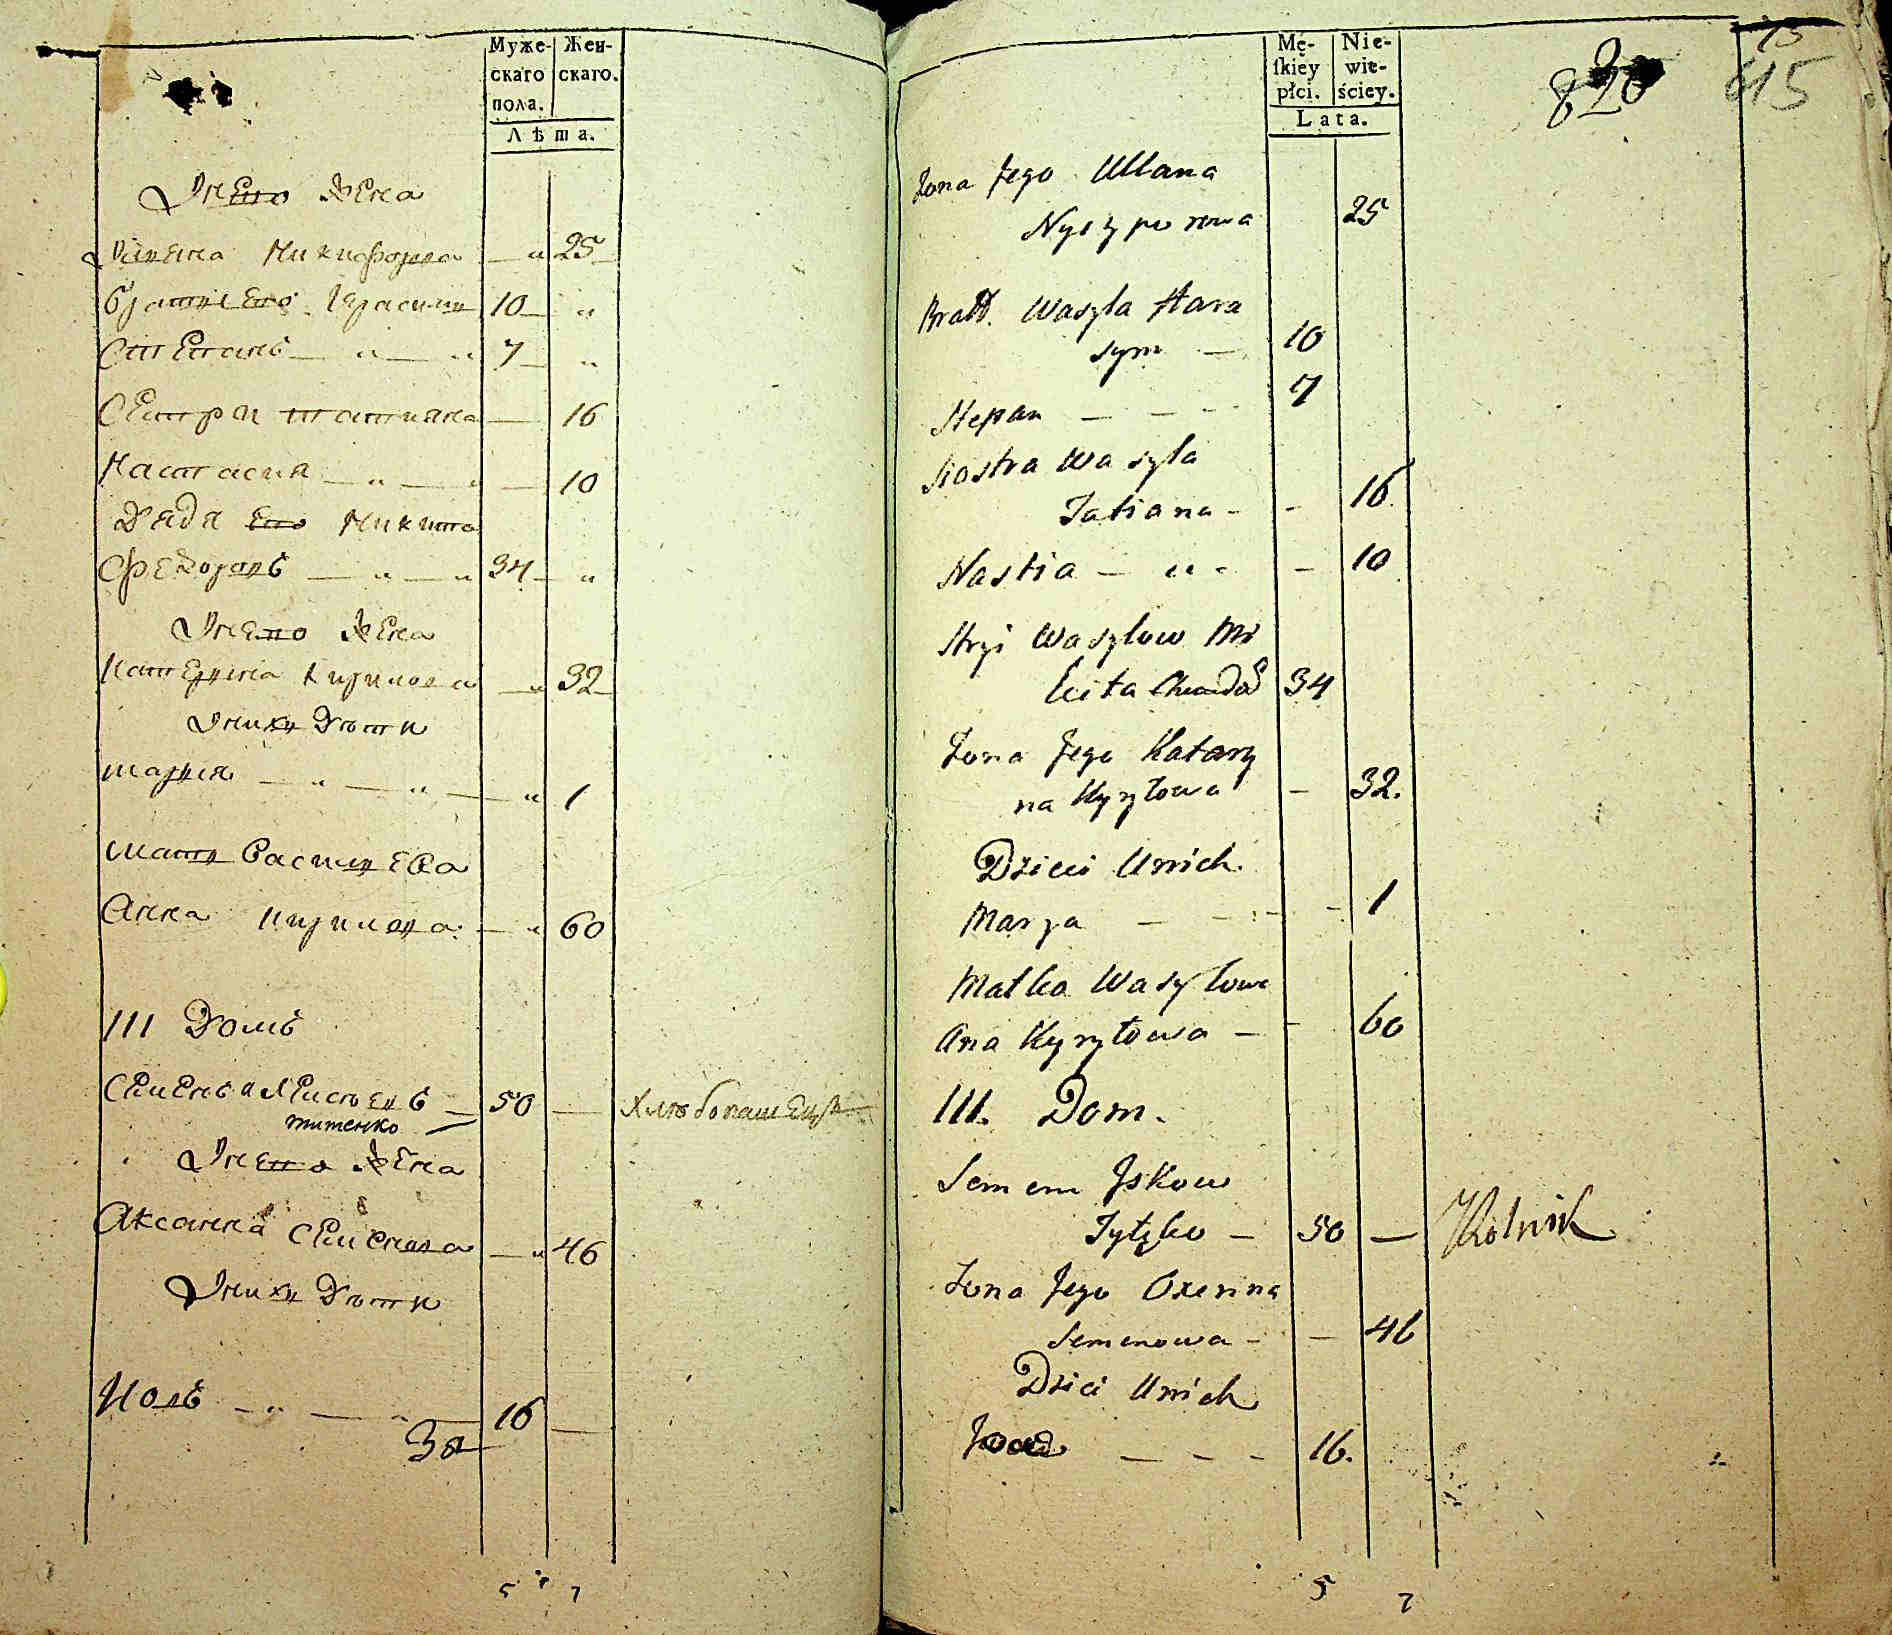 Муже-
скаго
пола.
Жен-
скаго.
Лѣта.
Унего Жена
Уляна Никифорова — „ 25
братья Его Герасимъ 10 — „
Степанъ — „ — „ 7 — „
Сестри татияна — 16
Настасия — „ — „ — 10
Дядя Его Микита
Федоровъ — „ — „ 34 — „
Унего Жена
Катерина Кирилова — „ 32
Унихъ Дѣти
мария — „ — „ — „ 1
мать Василиева
Анна Кирилова — „ 60
III Домъ
Семенъ
титенко — 50 — Хлѣбопашецъ
Унего Жена
Аксанна Семенова — „ 46
Унихъ Дѣти
Иовъ — „ — „ — 16 —
За
5 7
Mę-
skiey
płci.
Nie-
wie-
ściey.
Lata.
820
15
615
Zona Jego Ullana
Nyczyporowa 25
Bratt. Wasyla Hara
sym — 10
Stepan — — — 7
Siostra Wasyla
Tatiana - - 16.
Nastia — „ - — 10
Stryi Wasylow Mi
kita 34
Zona Jego Katarzy
na Kyryłowa — 32.
Dzieci Unich.
Marya — - - - 1
Matka Wasylowa
Ana Kyryłowa — - 60
III. Dom.
Semen Jskow
Tytęko — 50 — Rolnik
Zona Jego Oxenna
Semenowa - — 46
Dzici Unich
— — - - 16.
5 7